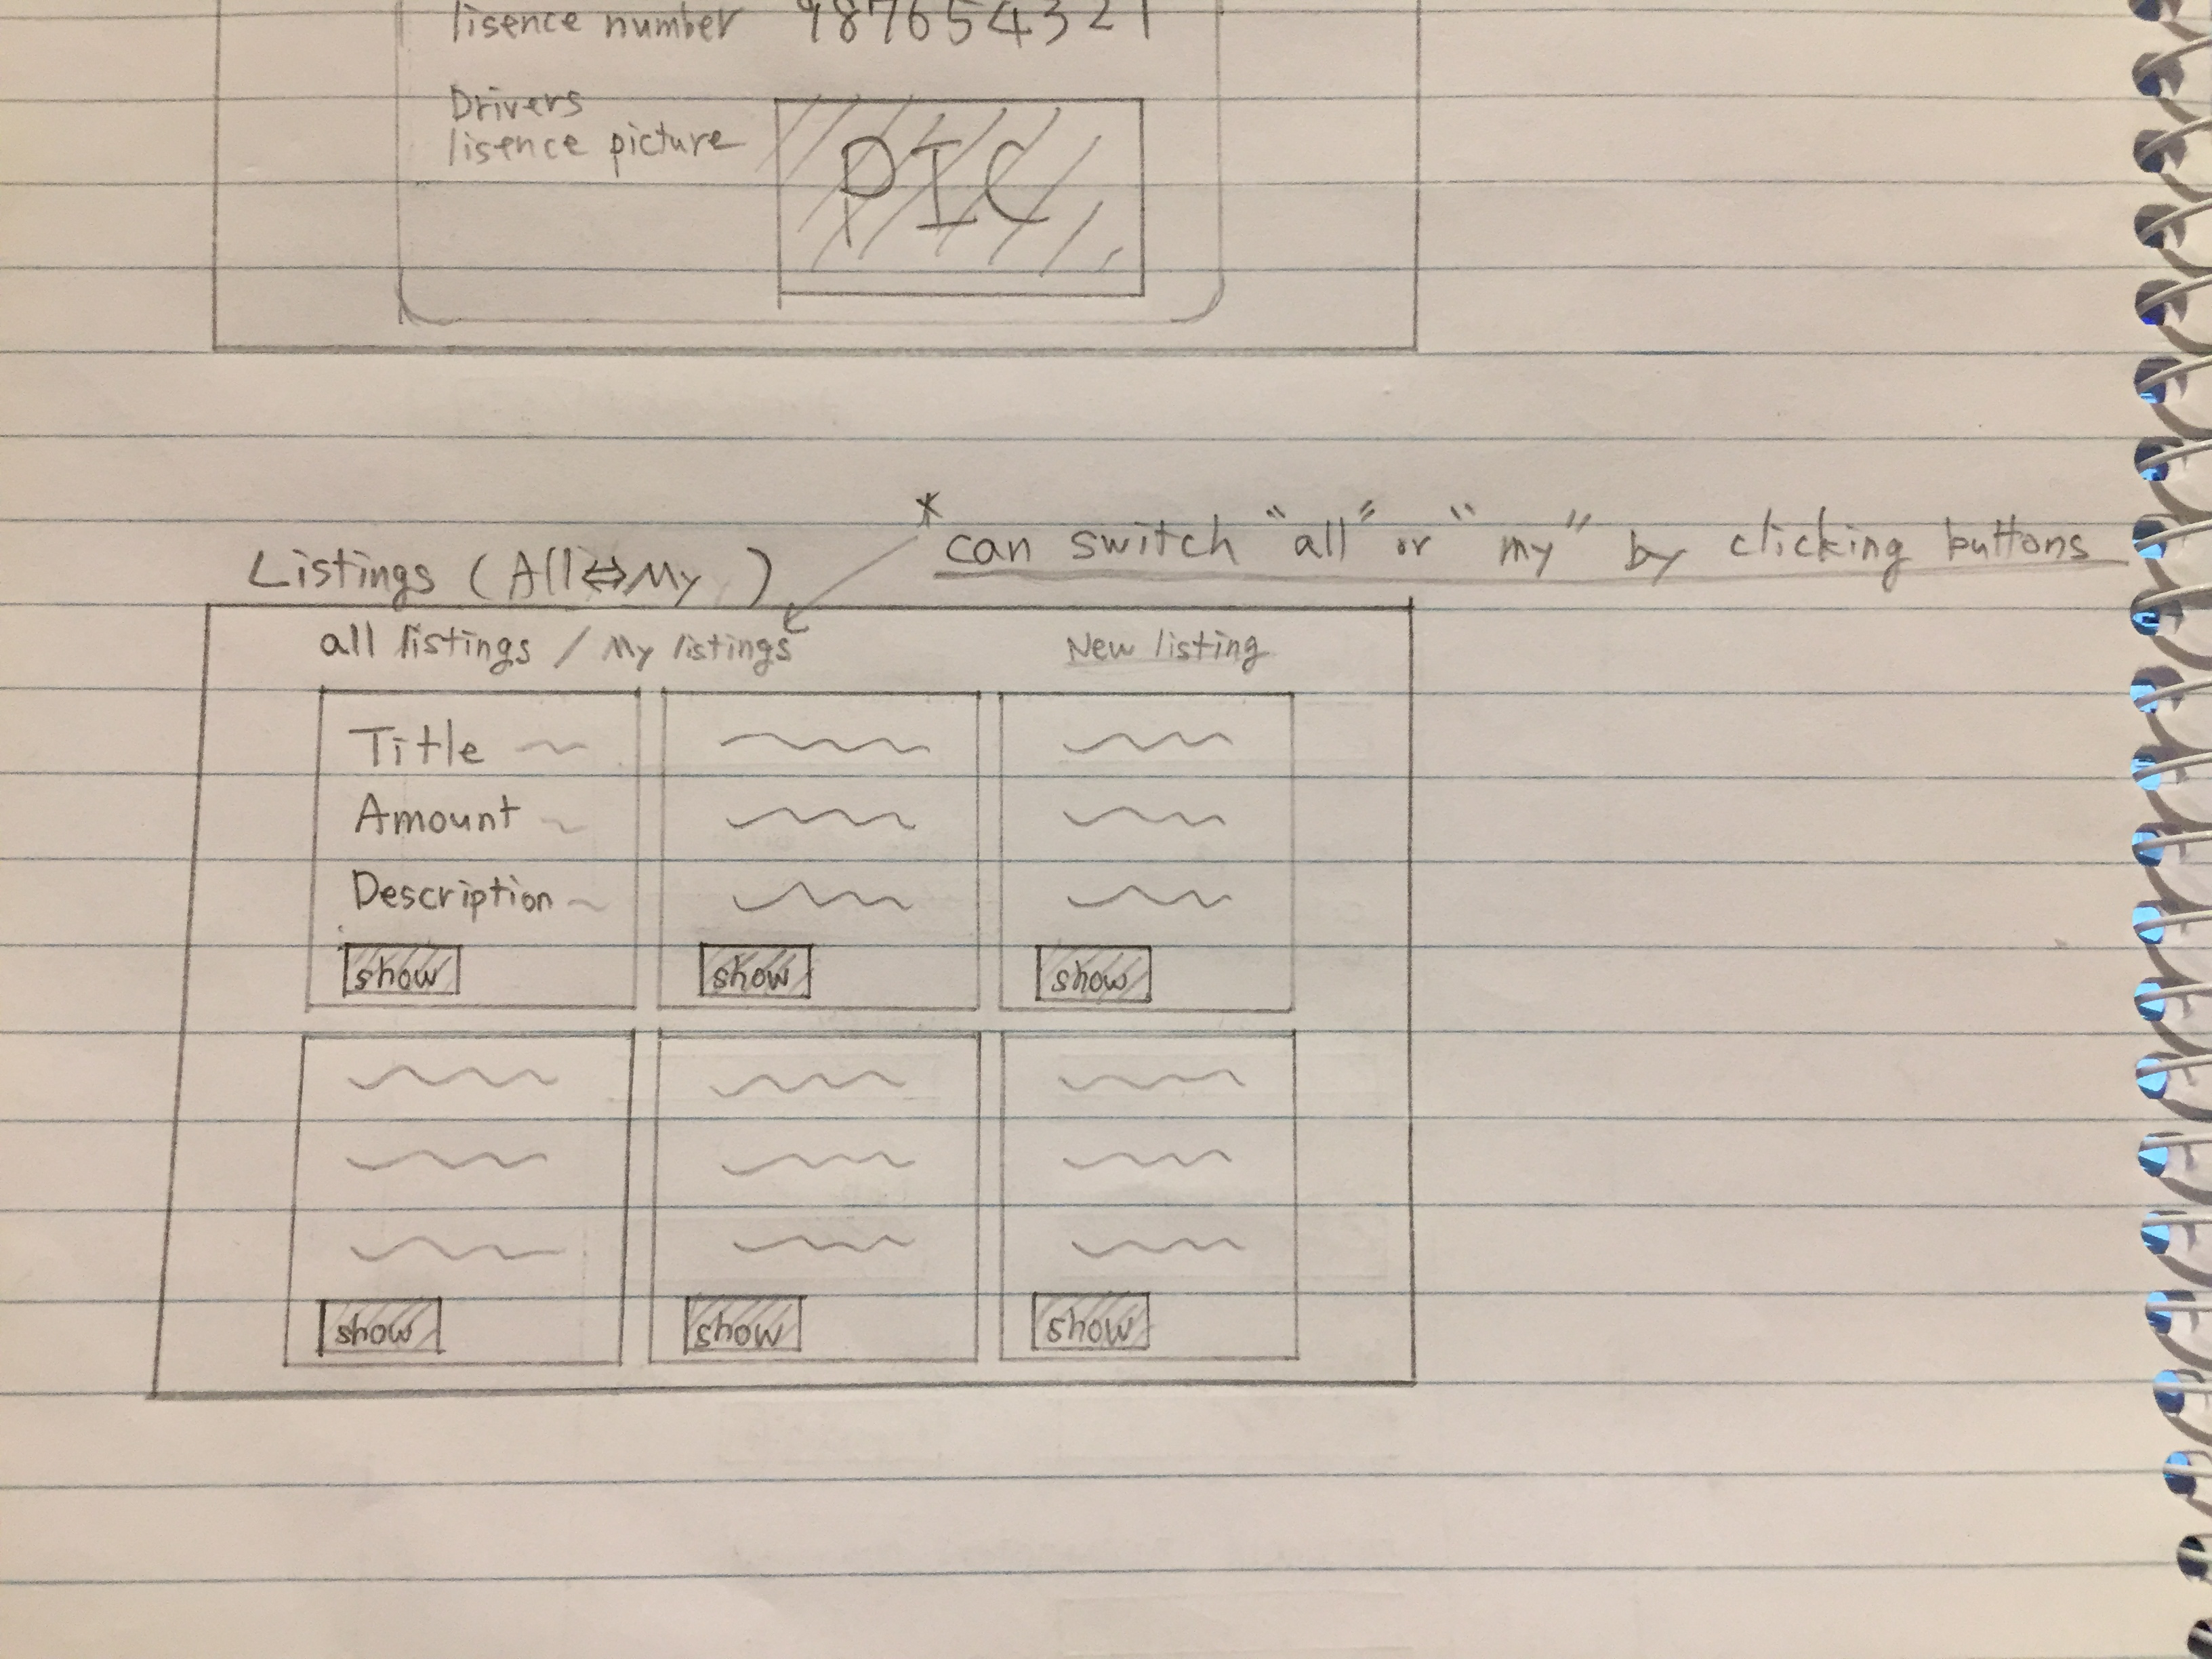 lisence number 987654321
Drivers
lisence picture
PIC
* can switch "all" or "my" by clicking buttons
Listings (All⇔My)
all listings / My listings New listing
Title
Amount
Description
show show show
show show show